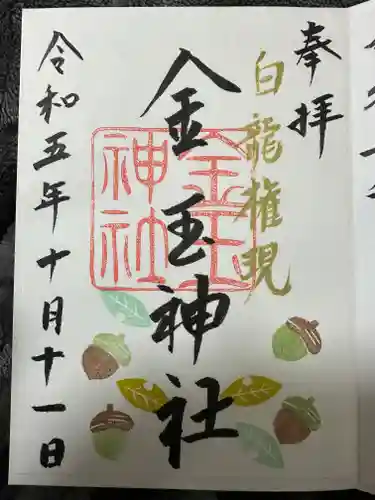 奉拝
白龍権現
金玉神社
金玉神社
令和五年十月十一日